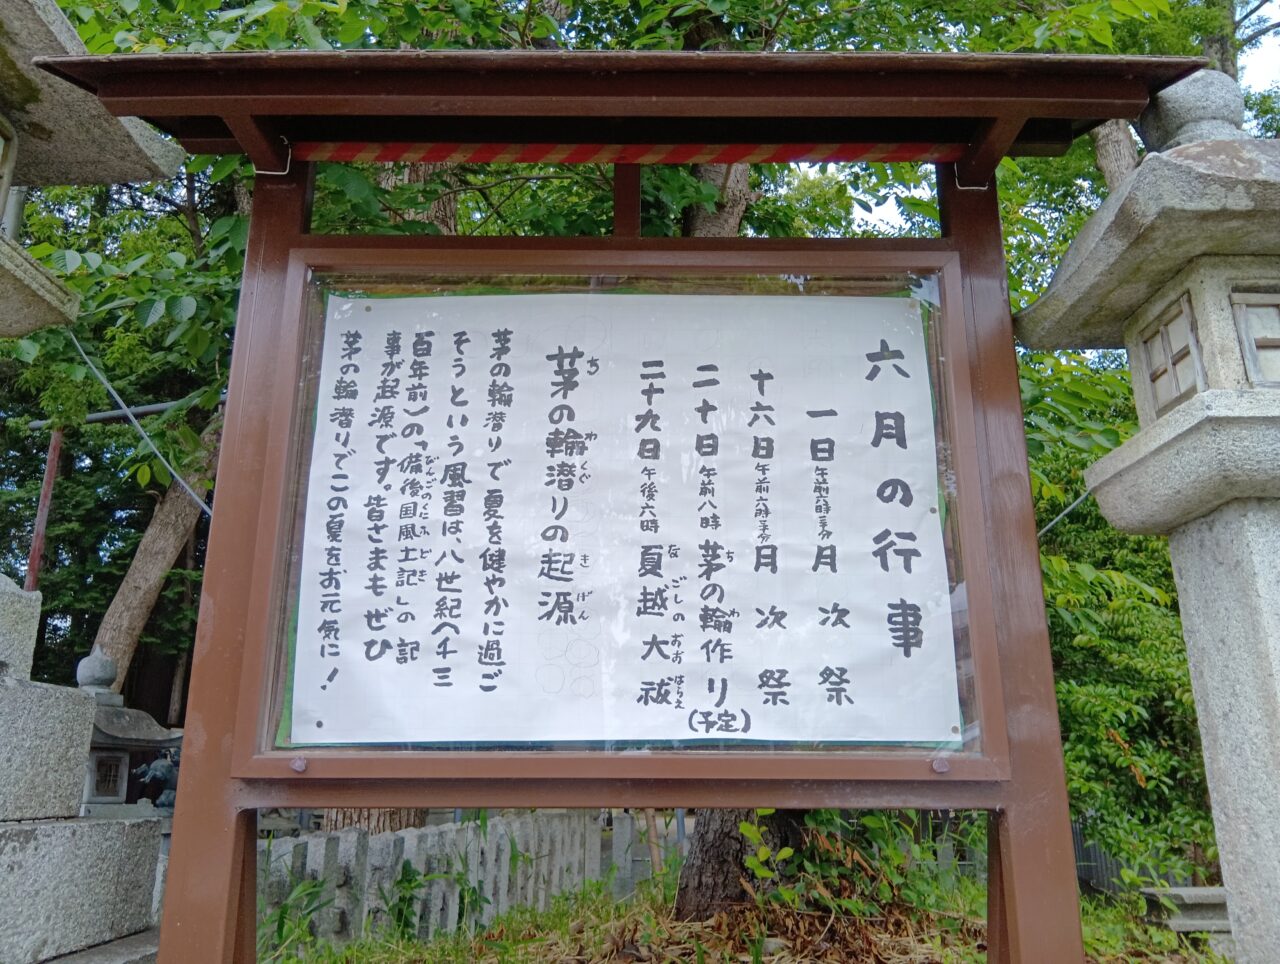 六月の行事
一日 午前六時三十分 月次祭
十六日 午前六時三十分 月次祭
二十日 午前八時 茅の輪作り(予定)
ち わ
二十九日 午後六時 夏越大祓
なごしのおおはらえ
茅の輪潜りの起源
ち わ くぐ きげん
茅の輪潜りで夏を健やかに過ご
そうという風習は、八世紀(千三
百年前)の「備後国風土記」の記
びんごのくにふどき
事が起源です。皆さまもぜひ
茅の輪潜りでこの夏をお元気に!